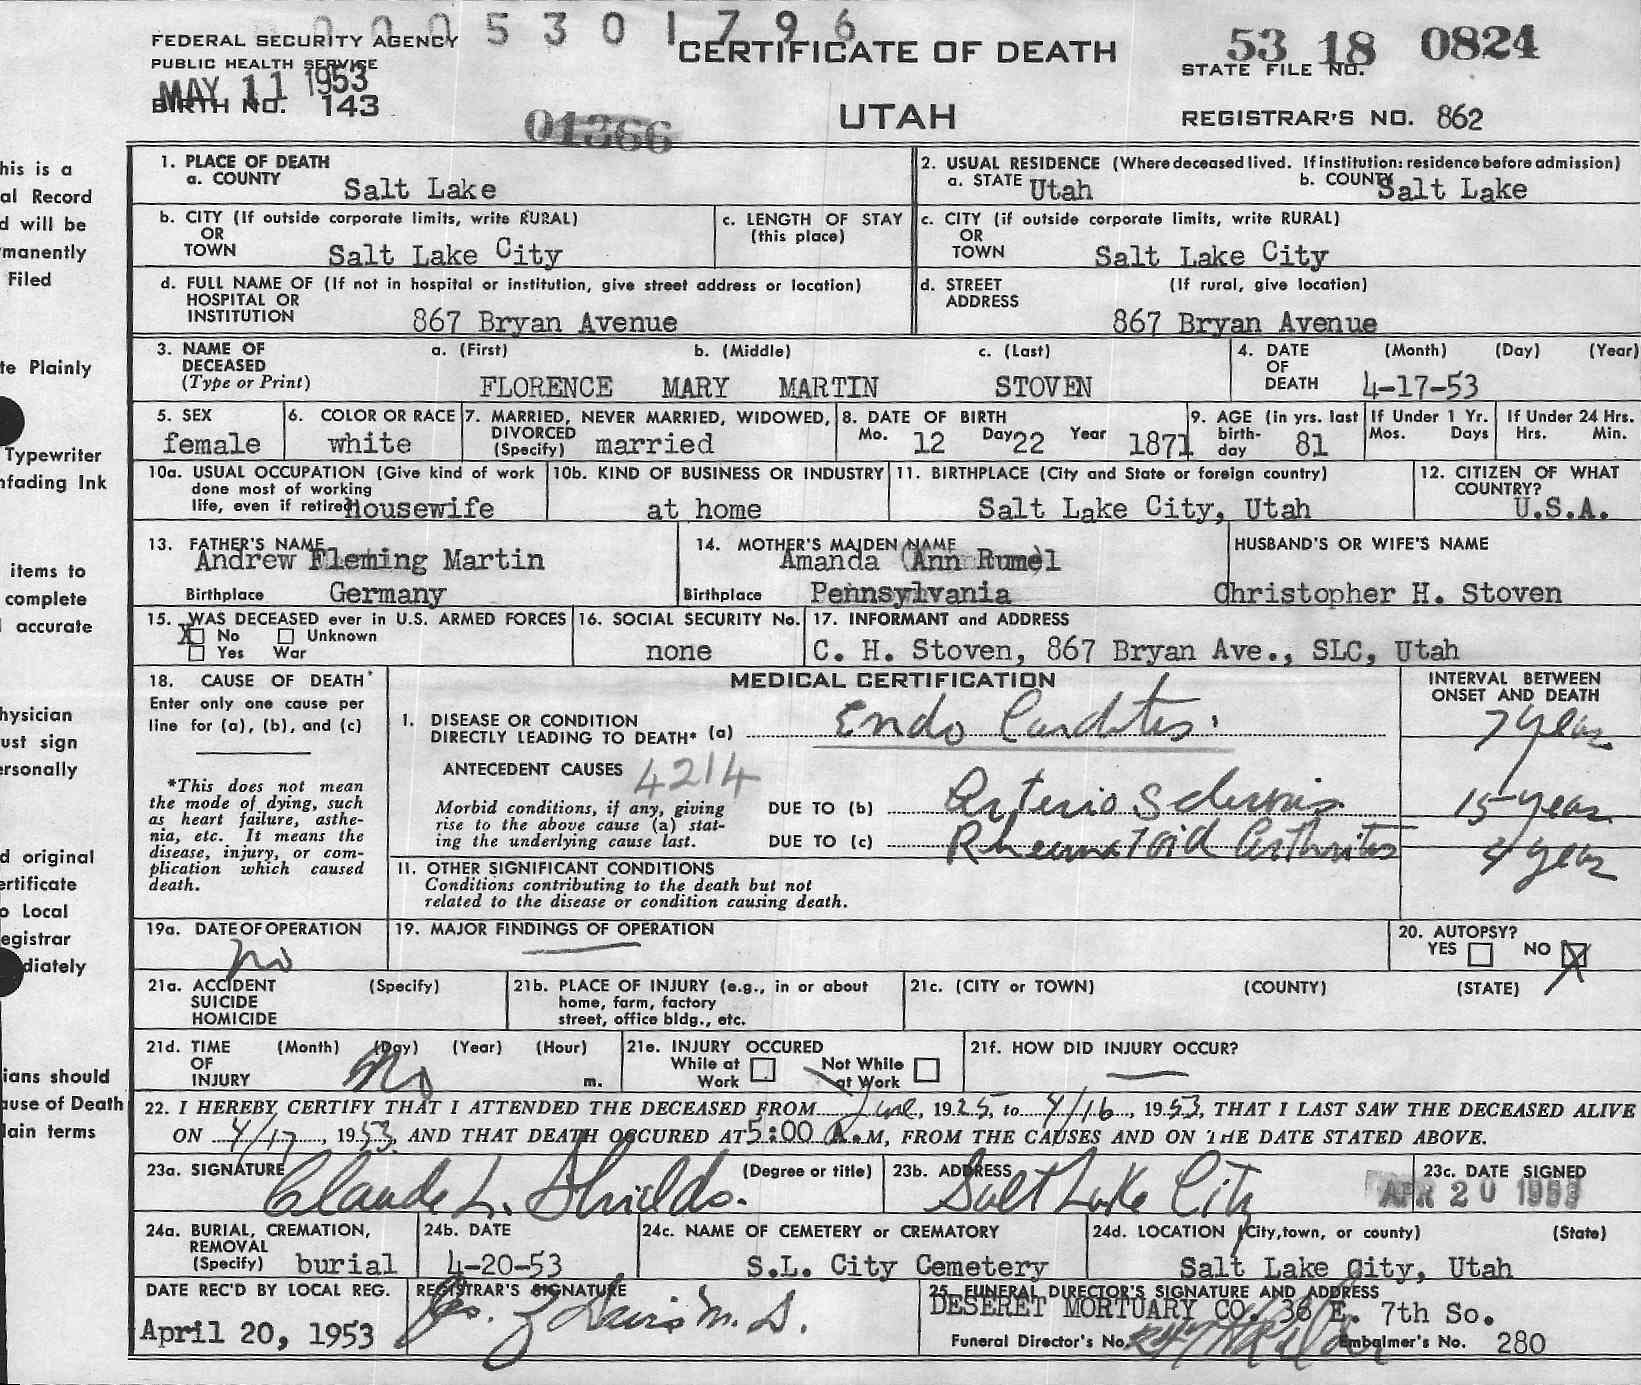 0005301796
FEDERAL SECURITY AGENCY
PUBLIC HEALTH SERVICE
MAY 11 1953
BIRTH NO. 143
CERTIFICATE OF DEATH
UTAH
01366
53 18 0824
STATE FILE NO.
REGISTRAR'S NO. 862
his is a
al Record
d will be
manently
Filed
te Plainly
Typewriter
nfading Ink
items to
complete
accurate
hysician
ust sign
ersonally
d original
ertificate
o Local
egistrar
diately
ians should
ause of Death
lain terms
1. PLACE OF DEATH
a. COUNTY Salt Lake
2. USUAL RESIDENCE (Where deceased lived. If institution: residence before admission)
a. STATE Utah b. COUNTY Salt Lake
b. CITY (If outside corporate limits, write RURAL)
OR
TOWN Salt Lake City
c. LENGTH OF STAY
(this place)
c. CITY (if outside corporate limits, write RURAL)
OR
TOWN Salt Lake City
d. FULL NAME OF (If not in hospital or institution, give street address or location)
HOSPITAL OR
INSTITUTION 867 Bryan Avenue
d. STREET (If rural, give location)
ADDRESS
867 Bryan Avenue
3. NAME OF DECEASED (Type or Print)
a. (First) b. (Middle) c. (Last)
FLORENCE MARY MARTIN STOVEN
4. DATE OF DEATH (Month) (Day) (Year)
4-17-53
5. SEX
female
6. COLOR OR RACE
white
7. MARRIED, NEVER MARRIED, WIDOWED,
DIVORCED
(Specify) married
8. DATE OF BIRTH
Mo. 12 Day 22 Year 1871
9. AGE (in yrs. last
birth-
day 81
If Under 1 Yr.
Mos. Days
If Under 24 Hrs.
Hrs. Min.
10a. USUAL OCCUPATION (Give kind of work
done most of working
life, even if retired) Housewife
10b. KIND OF BUSINESS OR INDUSTRY
at home
11. BIRTHPLACE (City and State or foreign country)
Salt Lake City, Utah
12. CITIZEN OF WHAT
COUNTRY?
U.S.A.
13. FATHER'S NAME
Andrew Fleming Martin
Birthplace Germany
14. MOTHER'S MAIDEN NAME
Amanda Ann Rumel
Birthplace Pennsylvania
HUSBAND'S OR WIFE'S NAME
Christopher H. Stoven
15. WAS DECEASED ever in U.S. ARMED FORCES
X No Unknown
Yes War
16. SOCIAL SECURITY No.
none
17. INFORMANT and ADDRESS
C. H. Stoven, 867 Bryan Ave., SLC, Utah
18. CAUSE OF DEATH*
Enter only one cause per
line for (a), (b), and (c)
*This does not mean
the mode of dying, such
as heart failure, asthe-
nia, etc. It means the
disease, injury, or com-
plication which caused
death.
MEDICAL CERTIFICATION
INTERVAL BETWEEN
ONSET AND DEATH
1. DISEASE OR CONDITION
DIRECTLY LEADING TO DEATH* (a) Endo Carditis. 7 year
ANTECEDENT CAUSES 4214
Morbid conditions, if any, giving
rise to the above cause (a) stat-
ing the underlying cause last.
DUE TO (b) Arterio Sclerosis. 15 year
DUE TO (c) Rheumatoid Arthritis 4 year
11. OTHER SIGNIFICANT CONDITIONS
Conditions contributing to the death but not
related to the disease or condition causing death.
19a. DATE OF OPERATION
no
19. MAJOR FINDINGS OF OPERATION
20. AUTOPSY?
YES NO X
21a. ACCIDENT (Specify)
SUICIDE
HOMICIDE
21b. PLACE OF INJURY (e.g., in or about
home, farm, factory
street, office bldg., etc.
21c. (CITY or TOWN) (COUNTY) (STATE)
21d. TIME (Month) (Day) (Year) (Hour)
OF
INJURY no m.
21e. INJURY OCCURED
While at Work Not While at Work
21f. HOW DID INJURY OCCUR?
22. I HEREBY CERTIFY THAT I ATTENDED THE DECEASED FROM June, 1925, to 4/16, 1953, THAT I LAST SAW THE DECEASED ALIVE
ON 4/17, 1953, AND THAT DEATH OCCURED AT 5:00 A.M, FROM THE CAUSES AND ON THE DATE STATED ABOVE.
23a. SIGNATURE (Degree or title)
Claude L. Shields.
23b. ADDRESS
Salt Lake City
23c. DATE SIGNED
APR 20 1953
24a. BURIAL, CREMATION,
REMOVAL
(Specify) burial
24b. DATE
4-20-53
24c. NAME OF CEMETERY or CREMATORY
S.L. City Cemetery
24d. LOCATION (City, town, or county) (State)
Salt Lake City, Utah
DATE REC'D BY LOCAL REG.
April 20, 1953
REGISTRAR'S SIGNATURE
Davis M.D.
25. FUNERAL DIRECTOR'S SIGNATURE AND ADDRESS
DESERET MORTUARY CO. 36 E. 7th So.
Funeral Director's No.
Embalmer's No. 280